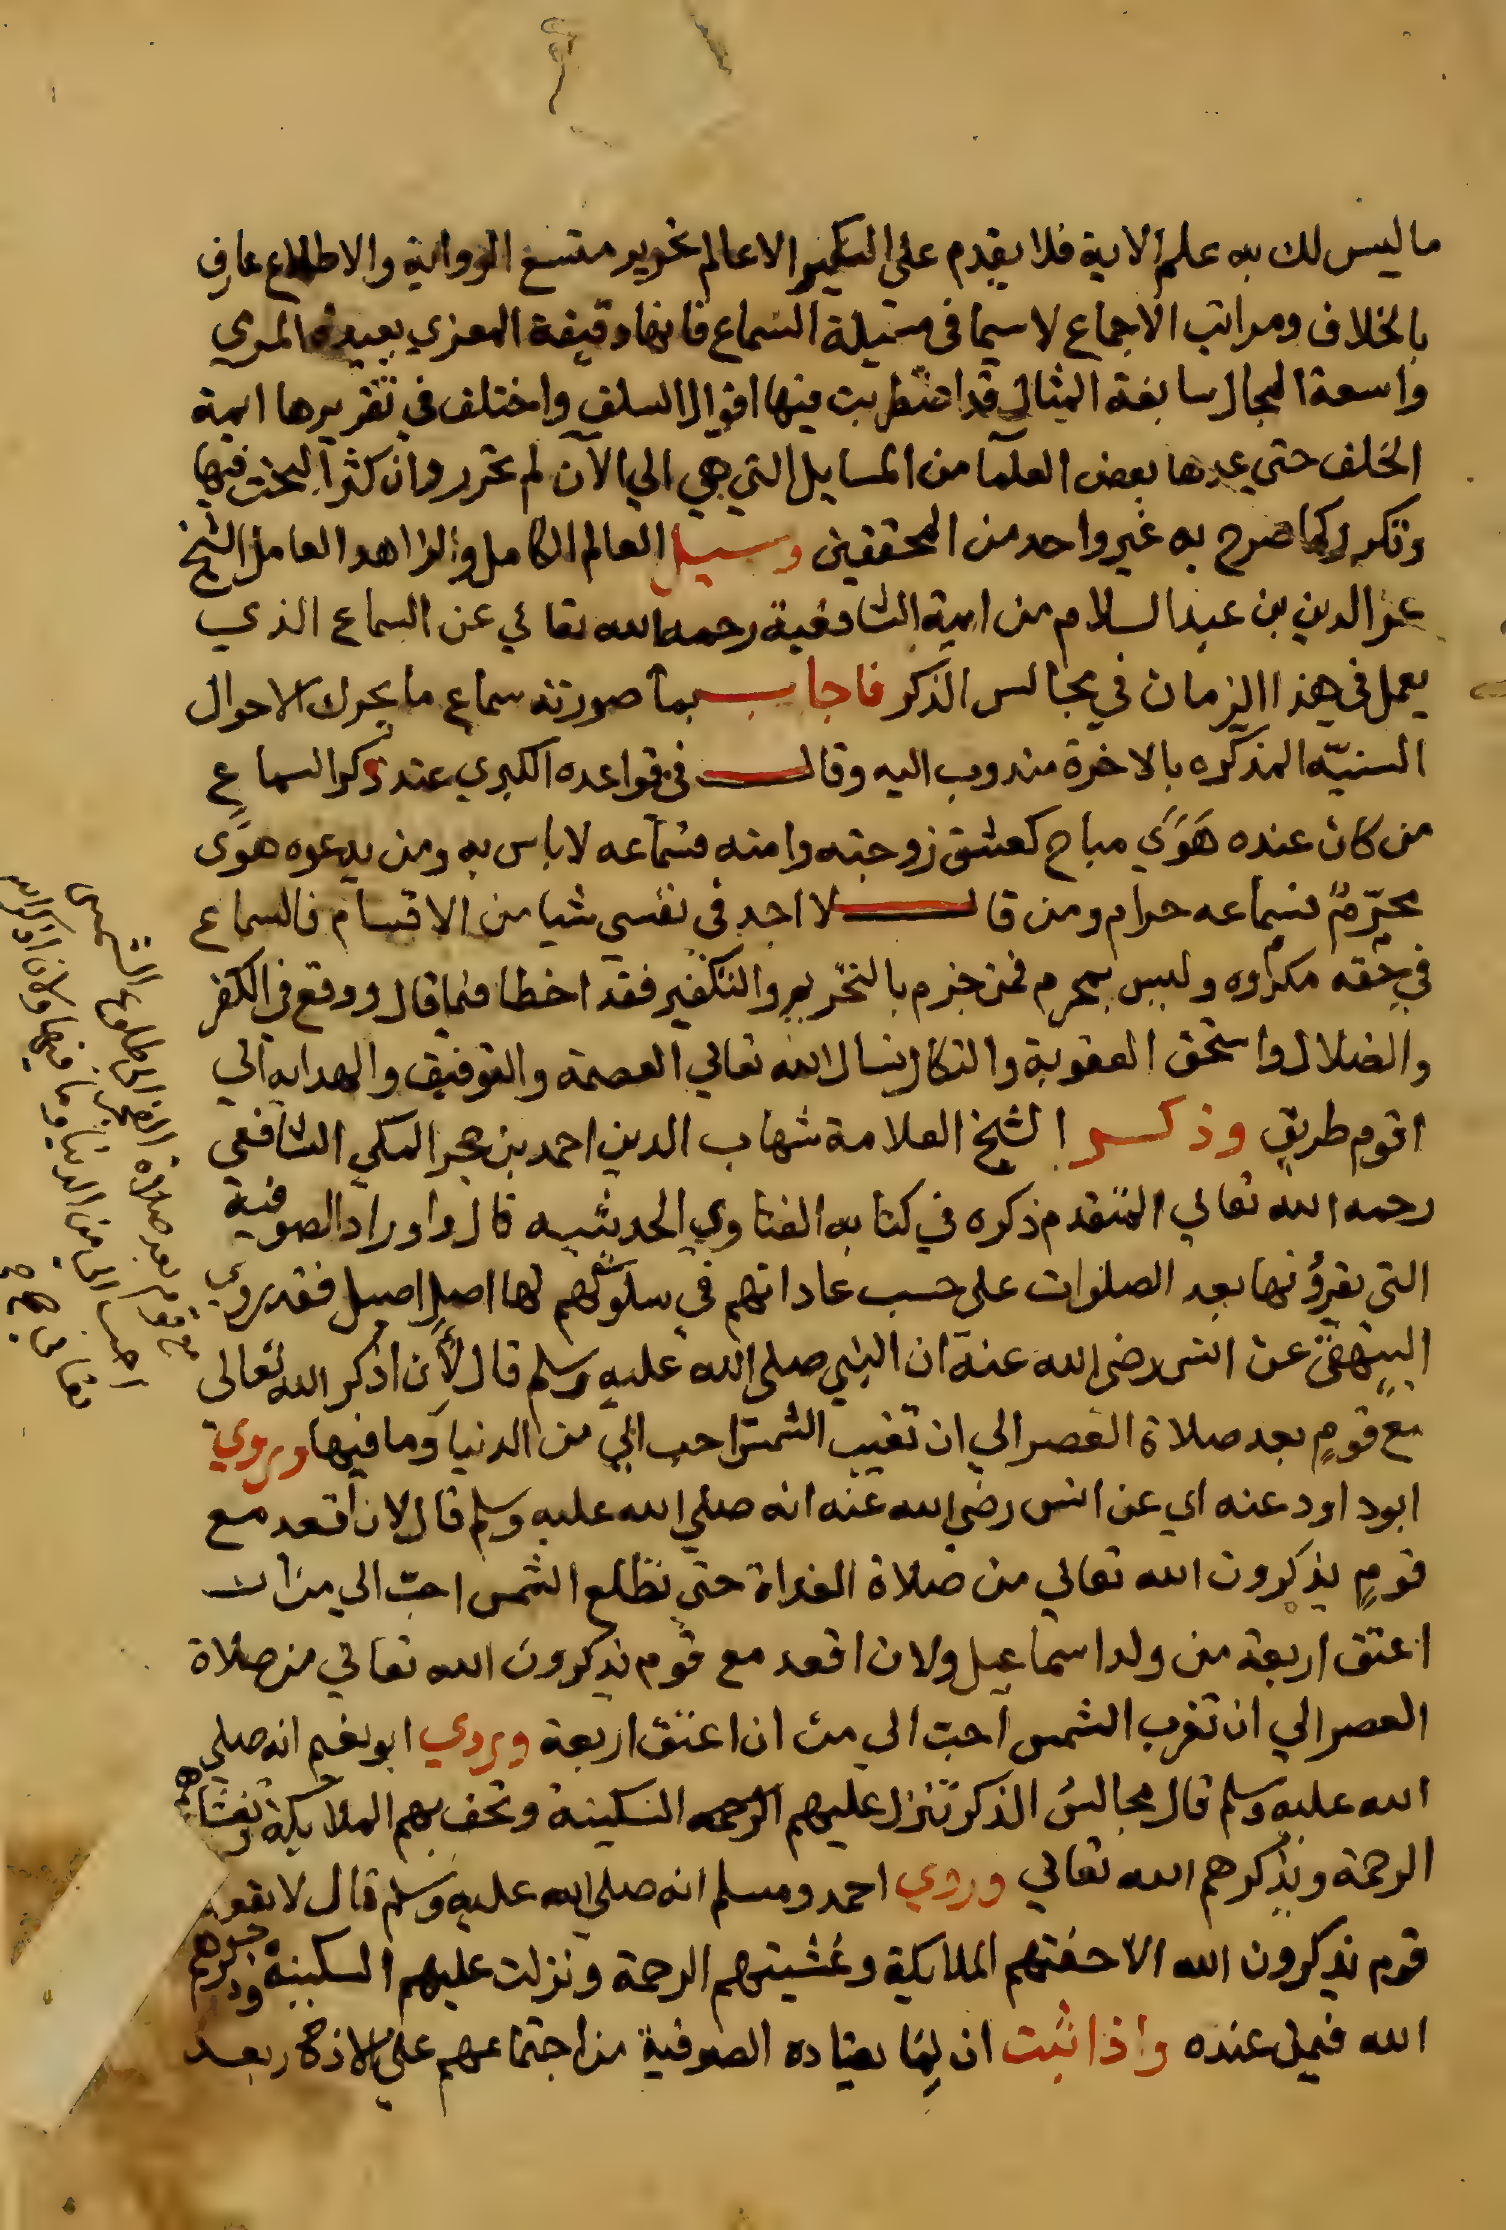 ما ليس لك به علم الاية فلا يقدم على التكفير الا عالم نحرير متسع الرواية والاطلاع عارف
بالخلاف ومراتب الاجماع لا سيما في مسيلة السماع فانها دقيقة المعزي بعيدة المري
واسعة المجال سابغة المثال قد اضطربت فيها اقوال السلف واختلف في تقريرها ايمة
الخلف حتي عدها بعض العلما من المسايل التي هي الي الآن لم تحرر وان كثر البحث فيها
وتكرر كما صرح به غير واحد من المحققين وسيل العالم الكامل والزاهد العامل الشيخ
عز الدين بن عبد السلام من ايمة الشافعية رحمه الله تعالي عن السماع الذي
يعمل في هذا الزمان في مجالس الذكر فاجاب بما صورته سماع ما يحرك الاحوال
السنيّة المذكره بالاخرة مندوب اليه وقال في قواعده الكبري عند ذكر السماع
من كان عنده هَوَي مباح كعشق زوجته وامته فسماعه لا باس به ومن يدعوه هوَى
محرّمٌ فسماعه حرام ومن قال لا اجد في نفسي شيا من الاقسام فالسماع
في حقه مكروه وليس بمحرم فمن جزم بالتحريم والتكفير فقد اخطا فيما قال ووقع في الكفر
والضلال واستحق العقوبة والنكال نسال الله تعالي العصمة والتوفيق والهداية الي
اقوم طريق وذكر الشيخ العلامة شهاب الدين احمد بن حجر المكي الشافعي
رحمه الله تعالي المتقدم ذكره في كتابه الفتاوي الحديثيه قال واوراد الصوفية
التي يقرؤنها بعد الصلوات على حسب عاداتهم في سلوكهم لها اصل اصيل فقد روي
البيهقي عن انس رضي الله عنه ان النبي صلى الله عليه وسلم قال لأن اذكر الله تعالى
مع قوم بعد صلاة العصر الي ان تغيب الشمس احب الي من الدنيا وما فيها وروي
ابو داود عنه اي عن انس رضي الله عنه انه صلي الله عليه وسلم قال لان اقعد مع
قومٍ يذكرون الله تعالي من صلاة الغداة حتي تطلع الشمس احبّ الي من ان
اعتق اربعة من ولد اسماعيل ولان اقعد مع قوم يذكرون الله تعالي من صلاة
العصر الي ان تغرب الشمس احبّ الي من ان اعتق اربعة وروي ابو نعيم انه صلي
الله عليه وسلم قال مجالس الذكر تنزل عليهم السكينة وتحف بهم الملايكة وتغشاهم
الرحمة ويذكرهم الله تعالي وروي احمد ومسلم انه صلي الله عليه وسلم قال لا يقعد
قوم يذكرون الله الا حفتهم الملايكة وغشيتهم الرحمة ونزلت عليهم السكينة وذكرهم
الله فيمن عنده واذا ثبت ان لِمَا يعتاده الصوفية من اجتماعهم على الاذكار بعد
وما فيها ولان اذكر الله
مع قوم بعد صلاة الفجر الى طلوع الشمس
احب الي من الدنيا وما فيها